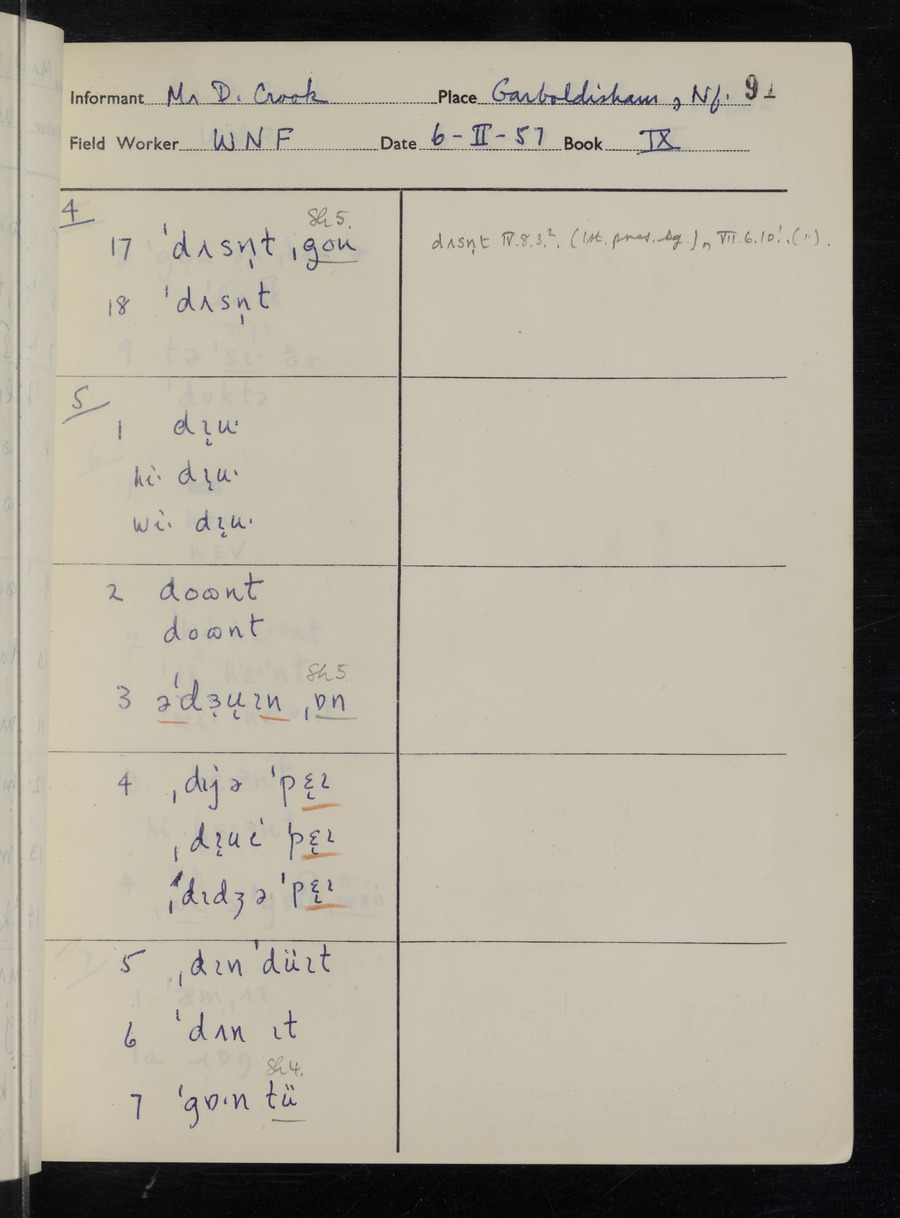 Informant Mr D. Crook Place Garboldisham, Nf. 91
Field Worker WNF Date 6-II-57 Book IX
4
Sh 5.
17 ˈdʌsn̩t ˌgou
dʌsn̩t IV.8.3.², (1st. pres. sg.), VII.6.10¹. (").
18 ˈdʌsn̩t
5
1 dɪ̨u·
hi· dɪ̨u·
wi· dɪ̨u·
2 doɷnt
doɷnt
Sh 5
3 əˈdʒ̨u̜ɪn ˌɒn
4 ˌdɪjə ˈpɛ̨ɪ
ˌdɪ̨ui ˈpɛ̨ɪ
ˌdɪdʒə ˈpɛ̨ɪ
5 ˌdɪn ˈdüɪt
6 ˈdʌn ɪt
Sh 4.
7 ˈgɒ·n tü